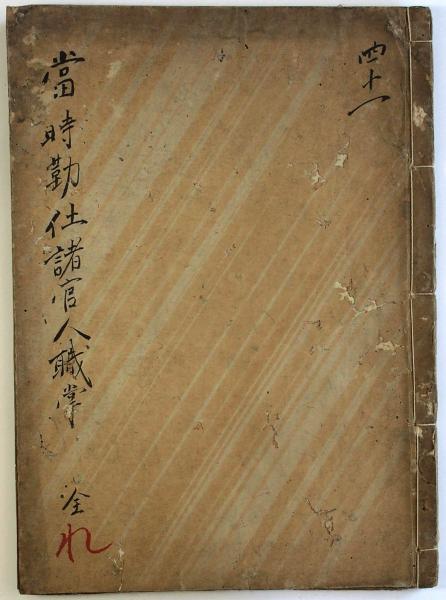 四十一
當時勤仕諸官人職掌
全
れ